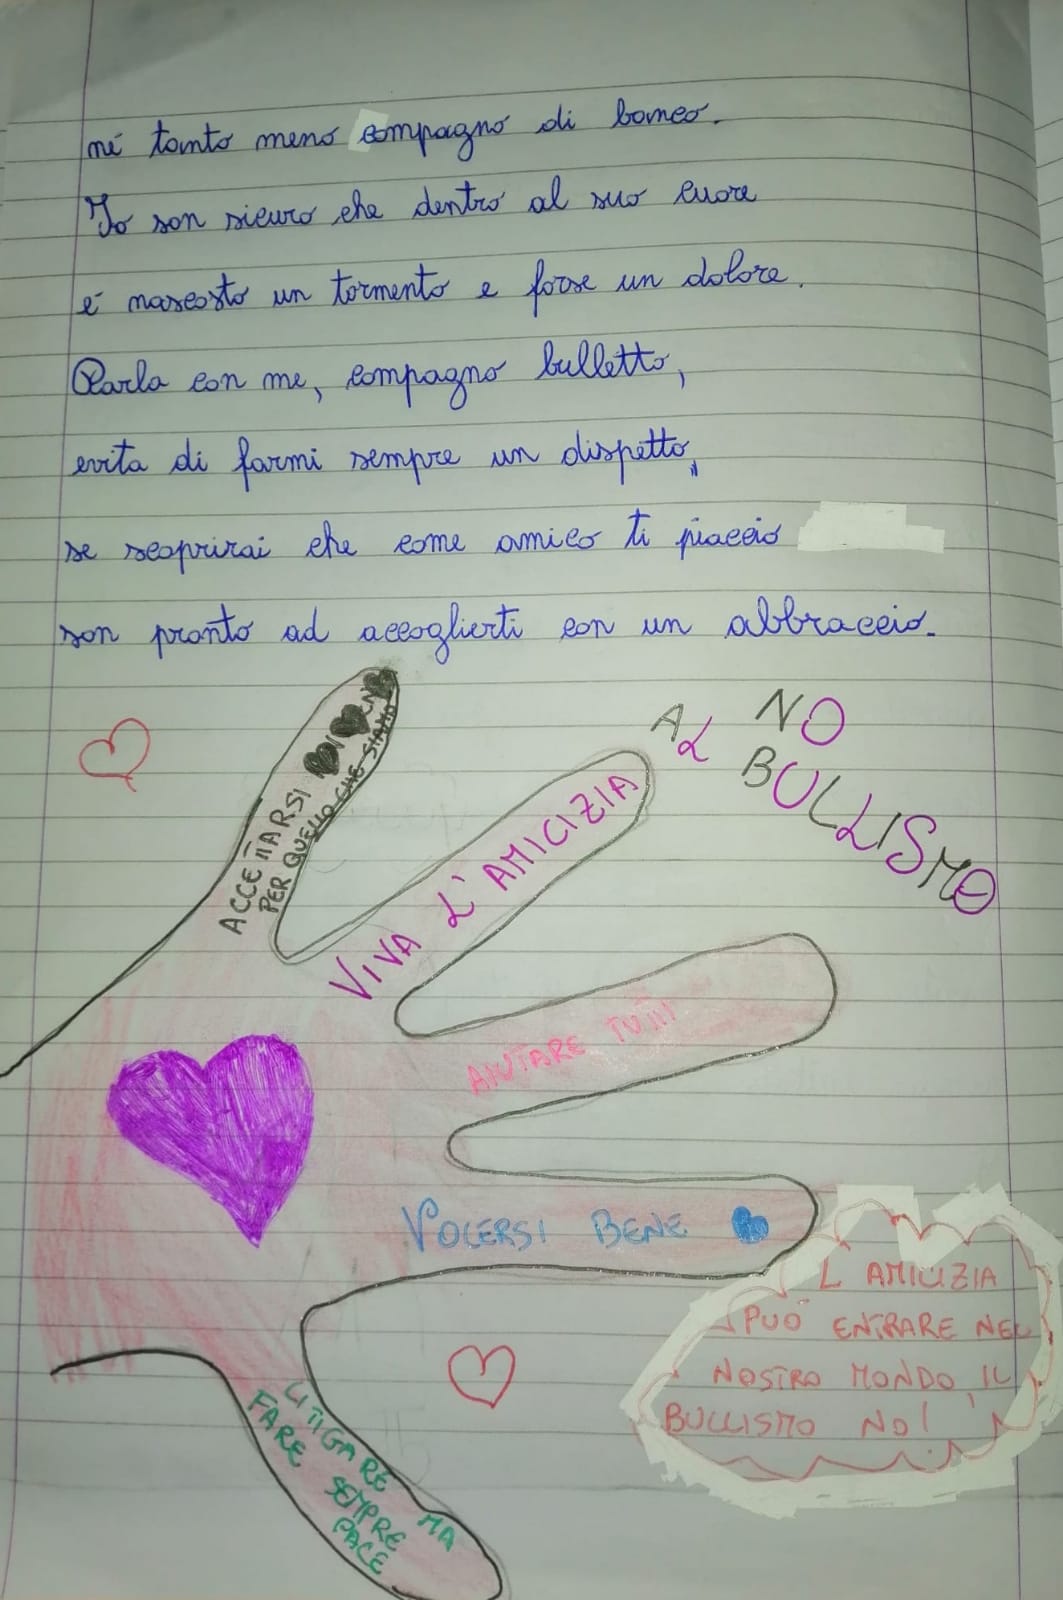 né tanto meno compagno di banco.
Io son sicuro che dentro al suo cuore
é nascosto un tormento e forse un dolore.
Parla con me, compagno bulletto,
evita di farmi sempre un dispetto,
se scoprirai che come amico ti piaccio
son pronto ad accoglierti con un abbraccio.
NO
AL BULLISMO
ACCETTARSI
PER QUELLO CHE SIAMO
VIVA L'AMICIZIA
AIUTARE TUTTI
VOLERSI BENE
L AMICIZIA
PUÓ ENTRARE NEL
NOSTRO MONDO, IL
BULLISMO NO!
LITIGARE MA
FARE SEMPRE
PACE